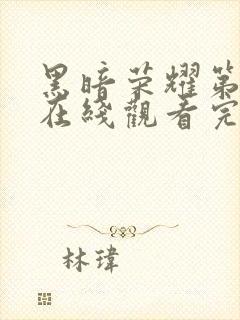 黑暗荣耀第
在綫觀看完
林瑋